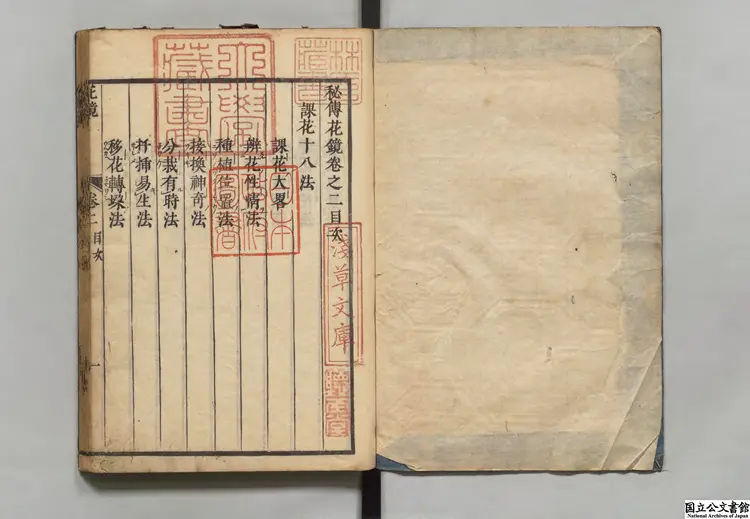 秘傳花鏡卷之二目次
課花十八法
課花大畧
辨花性情法
種植位置法
接換神奇法
分栽有時法
扦揷易生法
移花轉垜法
花鏡
卷二目次
一
淺草文庫
國立公文書館
National Archives of Japan